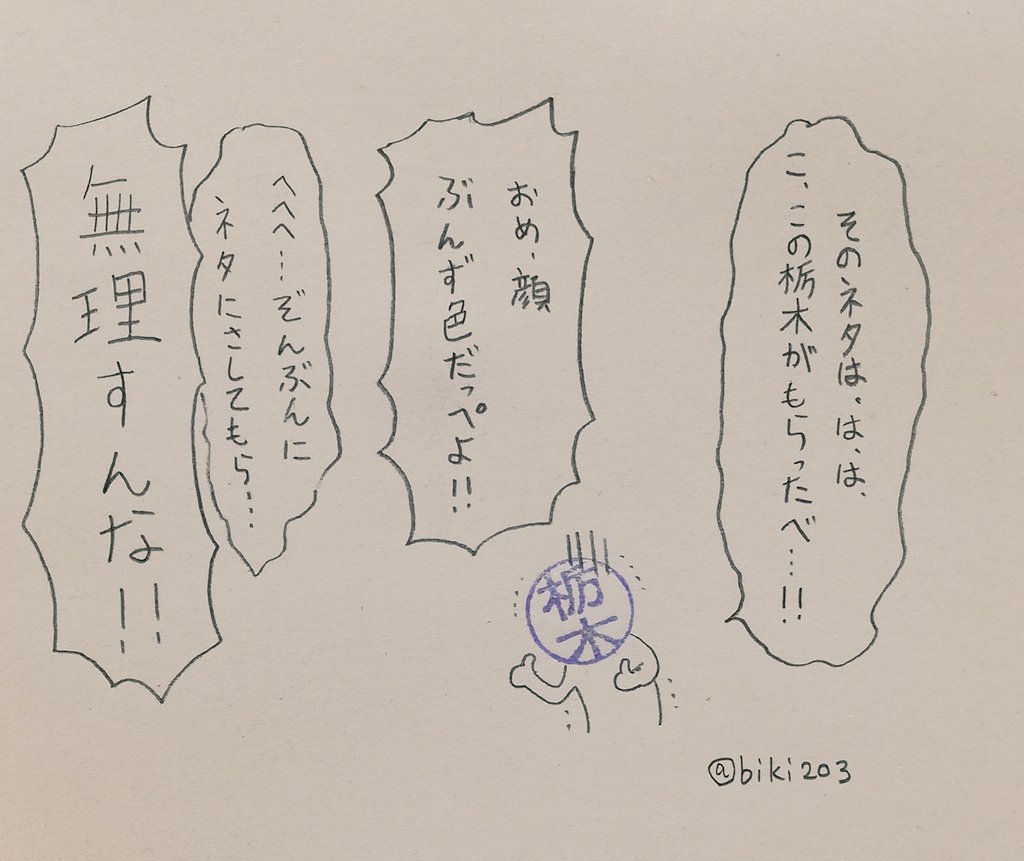 そのネタは、は、は、
こ、この栃木がもらったべ…!!
おめ、顔
ぶんず色だっぺよ!!
へへへ…ぞんぶんに
ネタにさしてもら……
無理すんな!!
栃木
@biki203